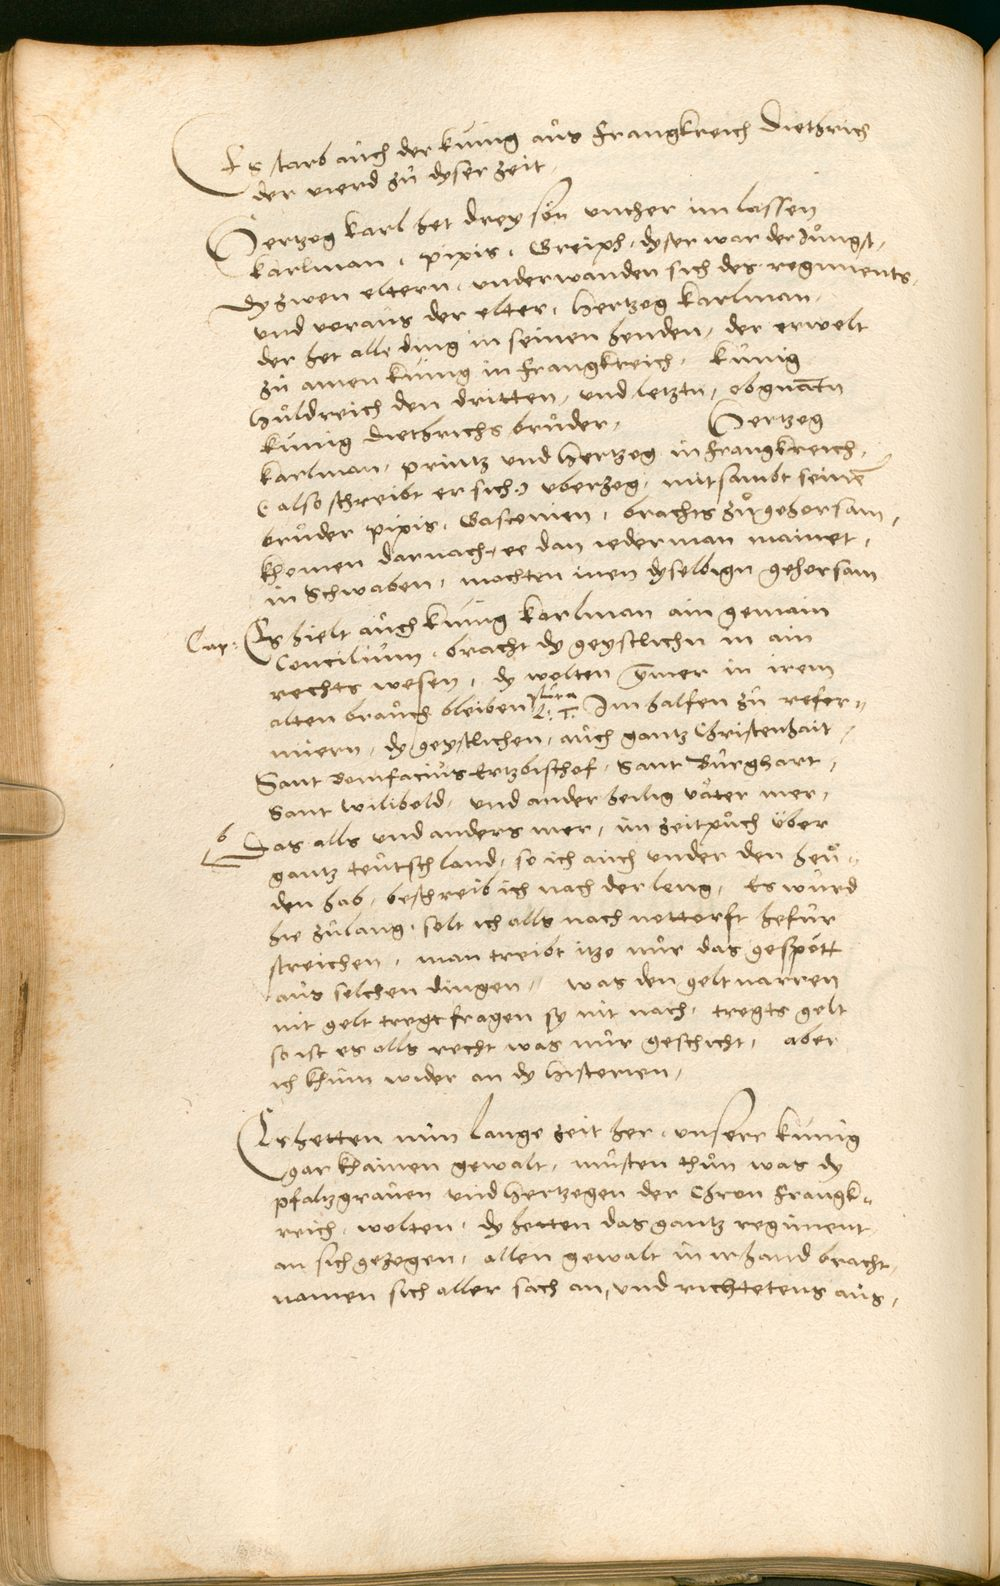 Es starb auch der künig aus Frangkreich Diethrich
der vierd zu dyser zeit.
Hertzog Karl het drey sön vncher im lassen
Karlman, pipis, Greiph, dyser war der Jüngst,
dy zwen eltern, vnderwanden sich des regiments,
vnd voraus der elter, Hertzog Karlman,
der het alle ding in seinen henden, der erwelt
zu ainen künig in Frangkreich, künig
Huldreich den dritten, vnd letztn, obgnatn
künig Diethrichs bruder, Hertzog
Karlman, printz vnd hertzog in Frangkreich,
(also schreibt er sich) vberzog, mitsambt seinē
bruder pipis, Gasconien, brachts zu gehorsam,
khomen darnach, ee dan iederman mainet,
in Schwaben, mochten inen dyselbign gehorsam
Cap: Es hielt auch künig Karlman ain gemain
Concilium, bracht dy geystlichn in ain
rechts wesen, dy wolten ymer in irem
alten brauch bleiben Im halfen zu refor-
miern, dy geystlichen, auch gantz Christenhait,
Sant Bonifacius Ertzbischof, Sant Burghart,
Sant Wilibold, vnd ander heilig väter mer,
Das alls vnd anders mer, im zeitpuch über
gantz teutschland, so ich auch vnder den hen-
den hab, beschreib ich nach der leng, Es wurd
hie zulang, solt ich alls nach nottorft hefür
streichen, man treibt itzo nur das gespött
aus solchen dingen, was den geltnarren
nit gelt tregt fragen sy nit nach, tregts gelt
so ist es alls recht was nur geschicht, aber
ich khum wider an dy historien,
Es hetten nun lange zeit her, vnsere künig
gar khainen gewalt, musten thun was dy
pfaltzgrauen vnd hertzogen der Chron Frangk-
reich, wolten, dy hetten das gantz regiment
an sich gezogen, allen gewalt in ir hand bracht,
namen sich aller sach an, vnd richtetens aus,